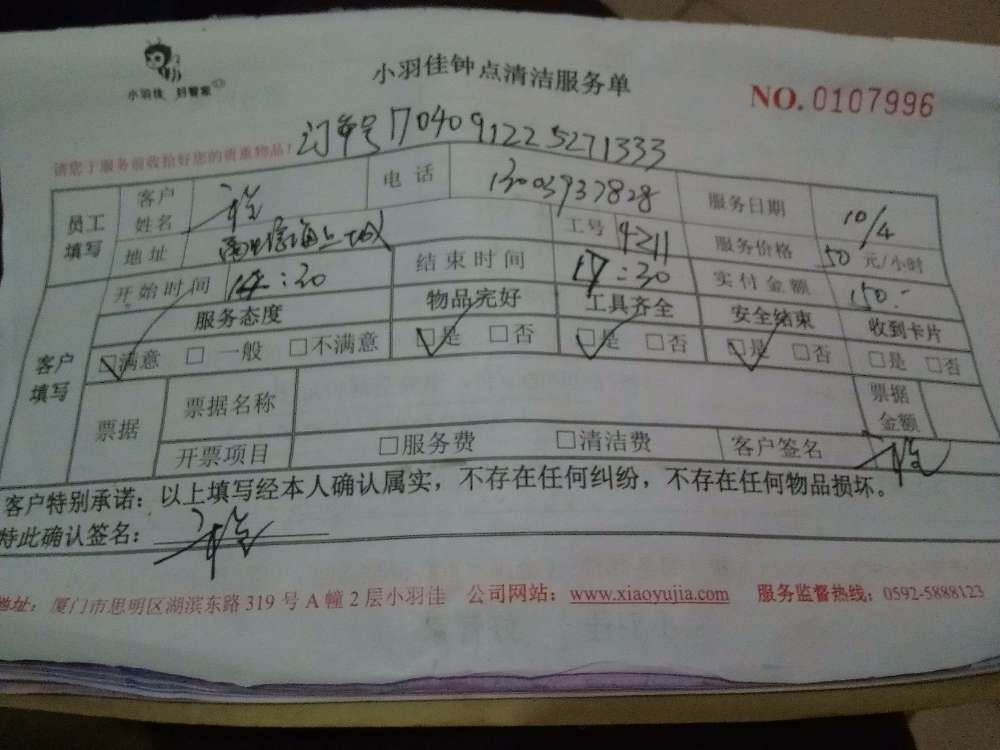 小羽佳 好管家
小羽佳钟点清洁服务单
NO. 0107996
订单号 1704091225271333
请您于服务前收拾好您的贵重物品！
员工填写 客户姓名 电话 13003937828 服务日期 10/4
地址 工号 4211 服务价格 50 元/小时
开始时间 14:30 结束时间 17:30 实付金额 150.-
客户填写 服务态度 物品完好 工具齐全 安全结束 收到卡片
☑满意 □一般 □不满意 ☑是 □否 ☑是 □否 ☑是 □否 □是 □否
票据 票据名称 票据金额
开票项目 □服务费 □清洁费 客户签名
客户特别承诺：以上填写经本人确认属实，不存在任何纠纷，不存在任何物品损坏。
特此确认签名：
地址：厦门市思明区湖滨东路 319 号 A 幢 2 层小羽佳 公司网站：www.xiaoyujia.com 服务监督热线：0592-5888123